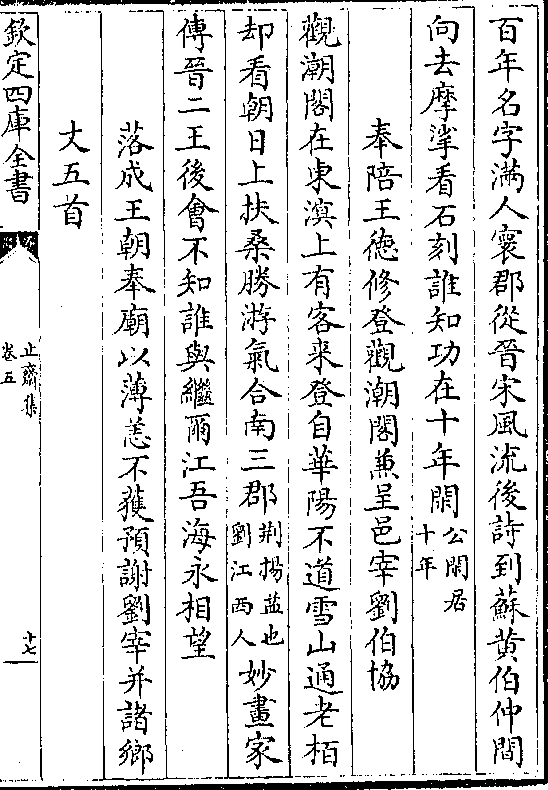 百年名字滿人寰郡從晉宋風流後詩到蘇黄伯仲間
向去摩挲看石刻誰知功在十年閑公閑居十年
奉陪王徳修登觀潮閣兼呈邑宰劉伯協
觀潮閣在東溟上有客来登自華陽不道雪山通老栢
却看朝日上扶桑勝游氣合南三郡荆揚益也劉江西人妙畫家
傳晉二王後會不知誰與繼爾江吾海永相望
落成王朝奉廟以薄恙不獲預謝劉宰并諸鄉
丈五首
欽定四庫全書
止齋集
卷五
十七